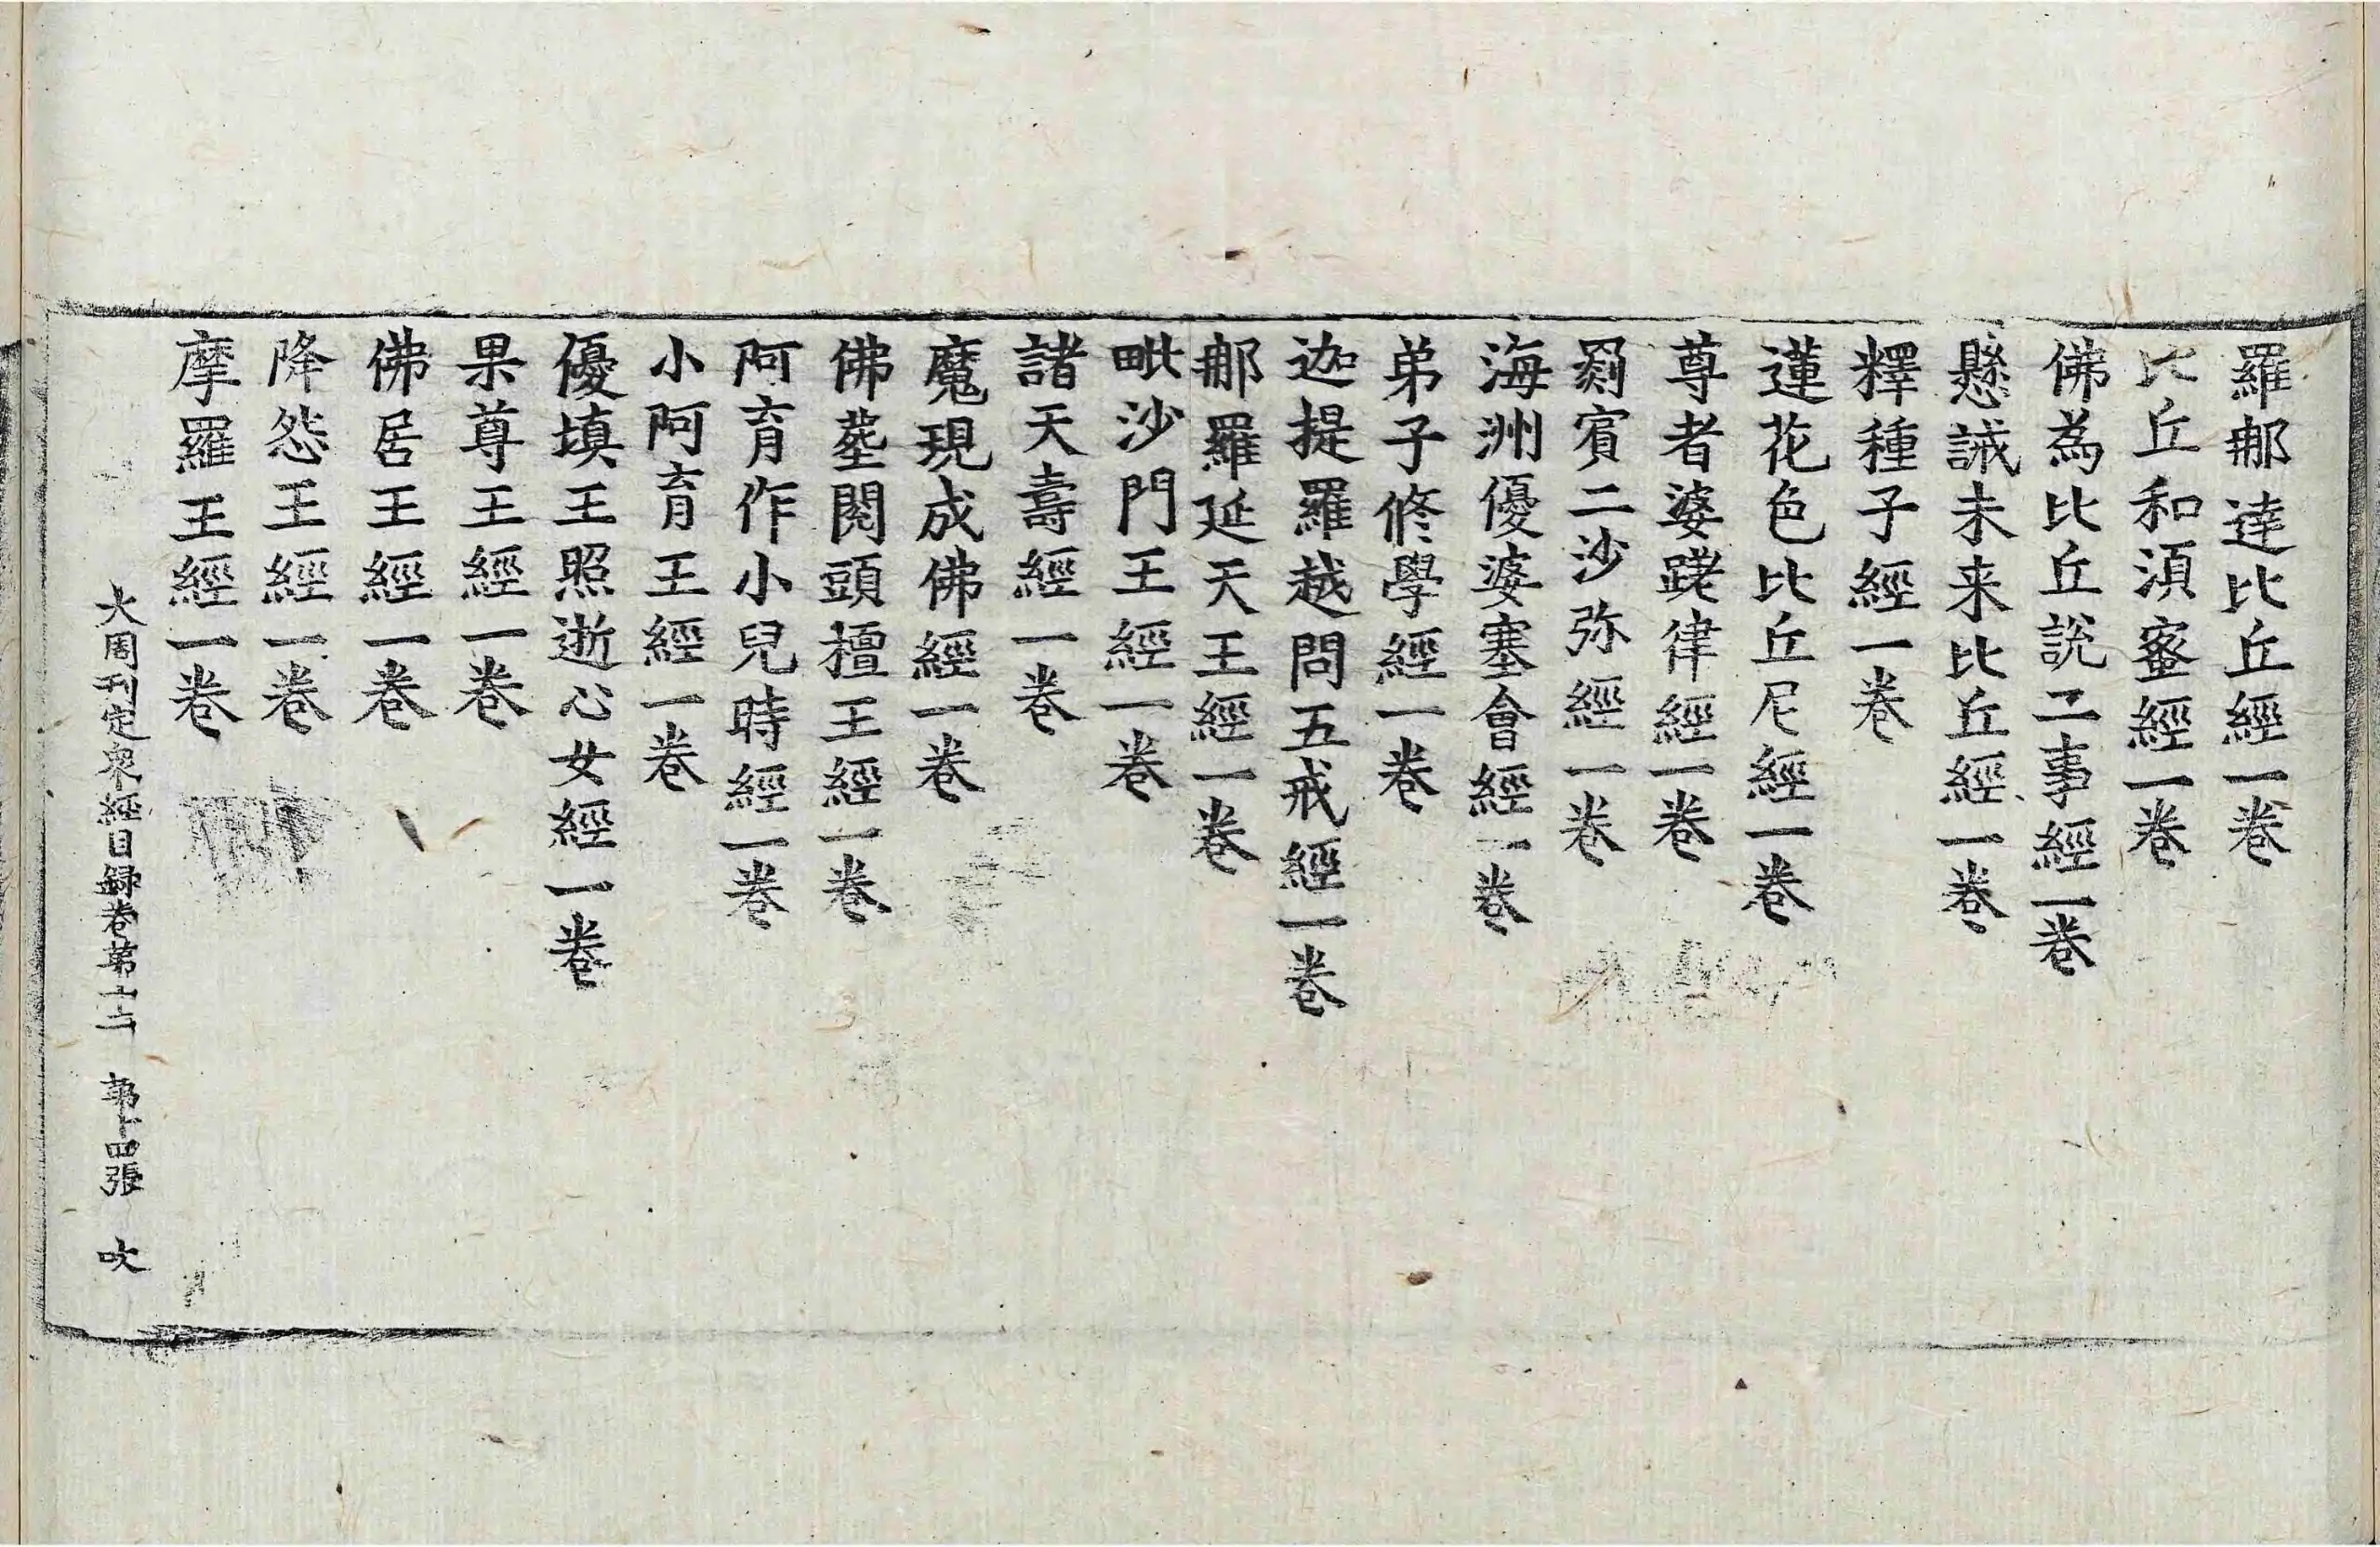 羅那達比丘經一卷
比丘和須蜜經一卷
佛為比丘說二事經一卷
懸誡未来比丘經一卷
釋種子經一卷
蓮花色比丘尼經一卷
尊者婆蹉律經一卷
罽賓二沙弥經一卷
海洲優婆塞會經一卷
弟子修學經一卷
迦提羅越問五戒經一卷
那羅延天王經一卷
毗沙門王經一卷
諸天壽經一卷
魔現成佛經一卷
佛塟閱頭檀王經一卷
阿育作小兒時經一卷
小阿育王經一卷
優填王照逝心女經一卷
果尊王經一卷
佛居王經一卷
降怨王經一卷
摩羅王經一卷
大周刊定衆經目録卷第十二 第十四張 吹